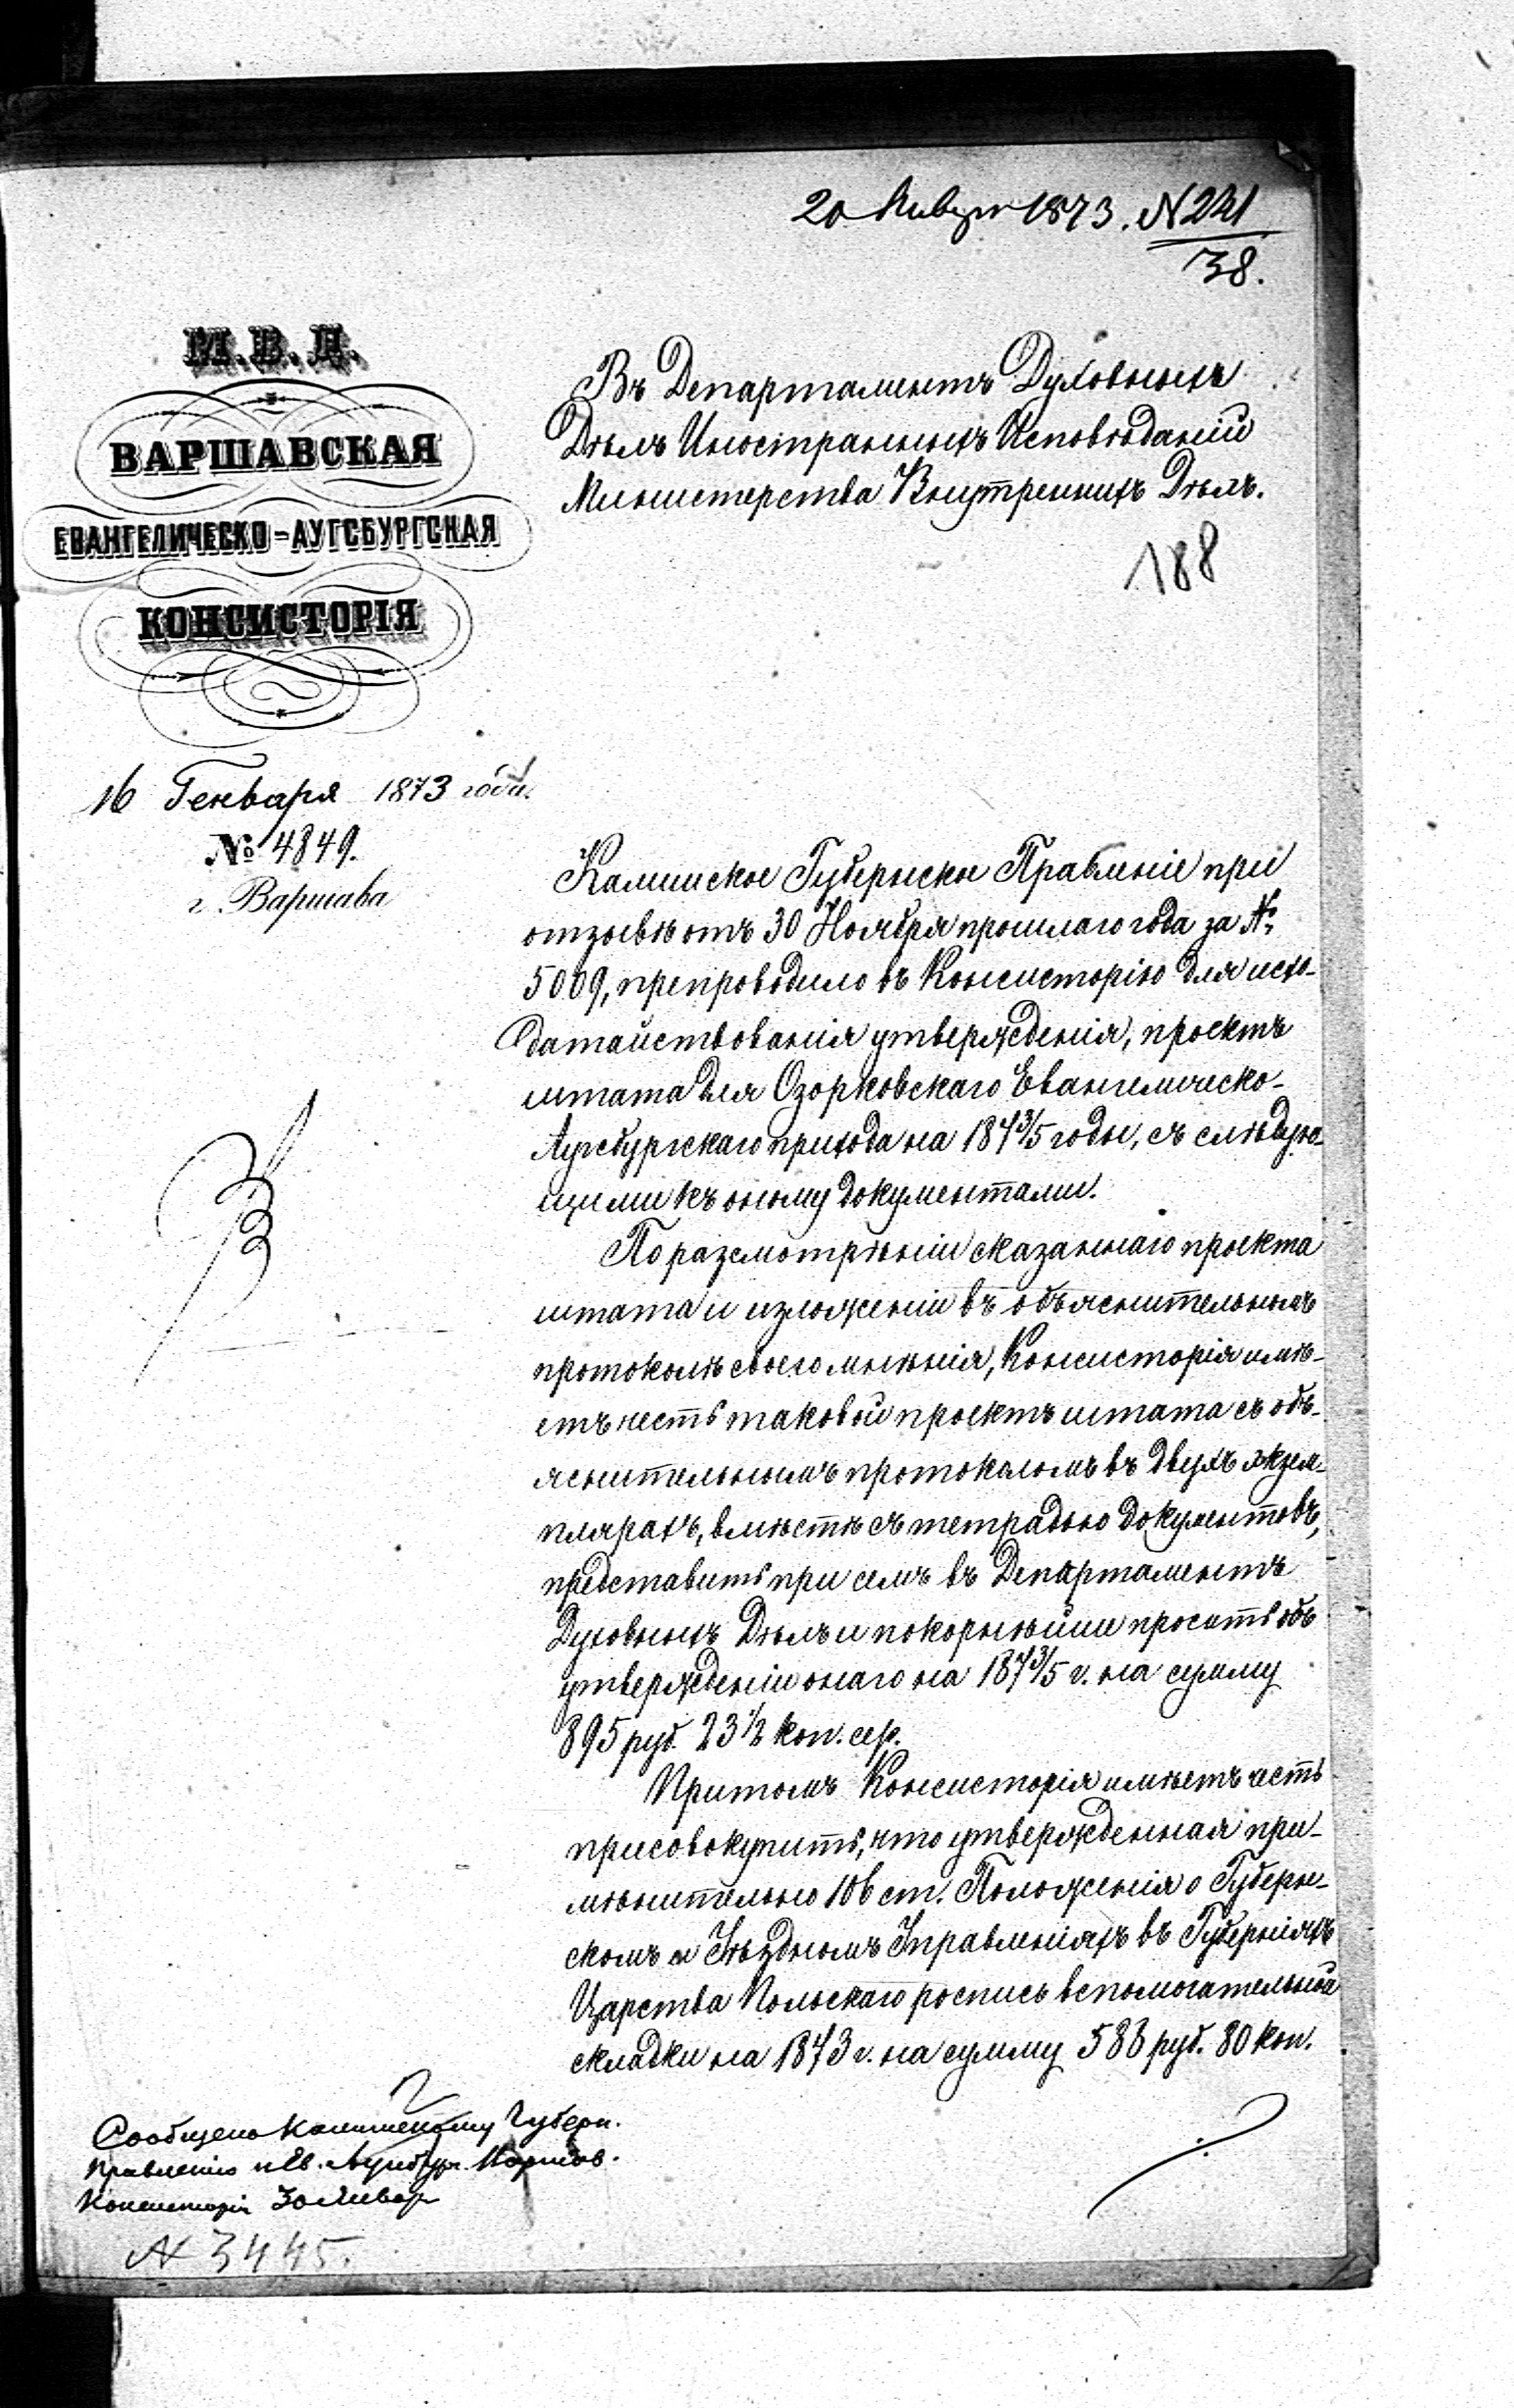 20 Января 1873. N 241
38.
М. В. Д.
ВАРШАВСКАЯ
ЕВАНГЕЛИЧЕСКО-АУГСБУРГСКАЯ
КОНСИСТОРІЯ
16 Генваря 1873 года.
№ 4849.
г. Варшава
Въ Департаментъ Духовныхъ
Дѣлъ Иностранныхъ Исповѣданій
Министерства Внутреннихъ Дѣлъ.
188
Калишское Губернское Правленіе при
отзывѣ отъ 30 Ноября прошлаго года за №
5009, препроводило въ Консисторію для исхо-
датайствованія утвержденія, проектъ
штата для Озорковскаго Евангелическо-
Аугсбургскаго прихода на 1873/5 годы, съ слѣдую-
щими къ оному документами.
По разсмотрѣніи сказаннаго проекта
штата и изложеніи въ объяснительномъ
протоколѣ своего мнѣнія, Консисторія имѣ-
етъ честь таковой проектъ штата съ объ-
яснительнымъ протоколомъ въ двухъ экзем-
плярахъ, вмѣстѣ съ тетрадью документовъ,
представить при семъ въ Департаментъ
Духовныхъ Дѣлъ и покорнѣйше просить объ
утвержденіи онаго на 1873/5 г. на сумму
895 руб. 23 1/2 коп. сер.
Притомъ Консисторія имѣетъ честь
присовокупить, что утвержденная при-
мѣнительно 106 ст. Положенія о Губерн-
скомъ и Уѣздномъ Управленіяхъ въ Губерніяхъ
Царства Польскаго роспись вспомогательной
складки на 1873 г. на сумму 586 руб. 80 коп.
Сообщено Калишскому Губерн.
Правленію и Ев. Аугсбург.
Консисторіи 30 Январ
N 3445.